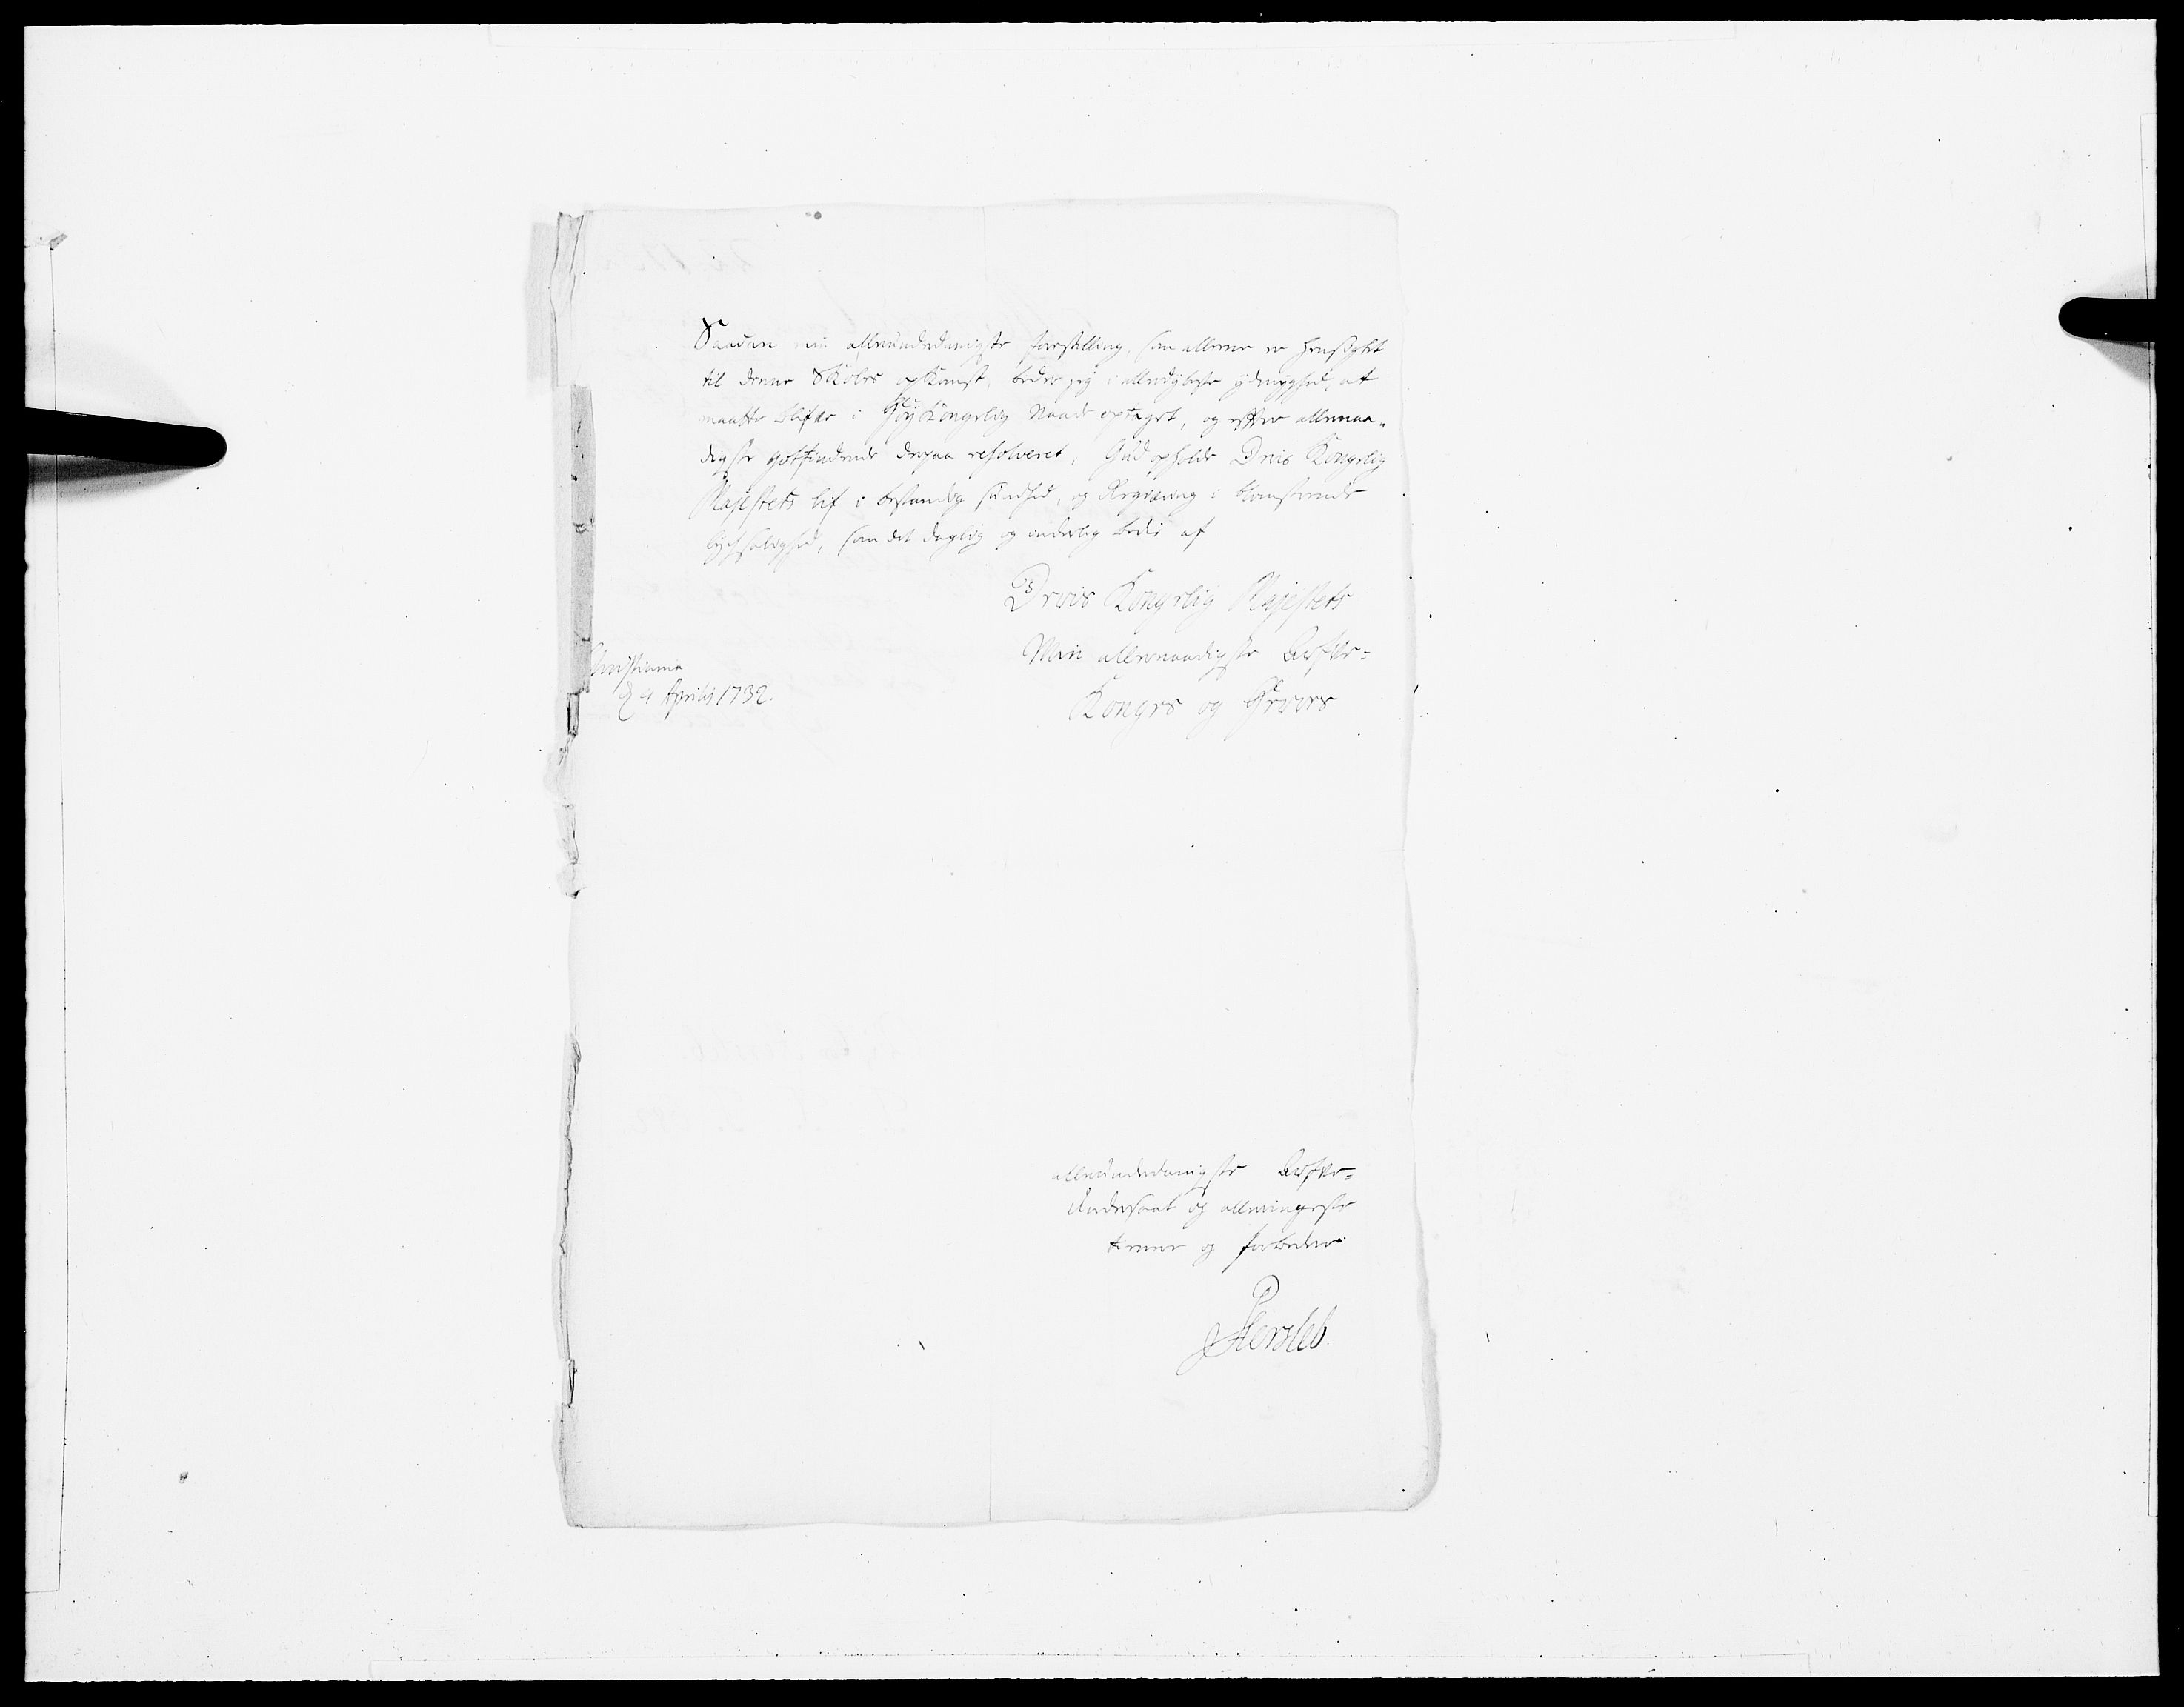 Saadan min allerunderdanigste forestilling, som allene er hensigtet
til denne Skoles opKomst, beder jeg i allerdybeste ydmyghed, at
maatte blifve i HøyKongelig Naade optaget, og efter allernaa-
digste gotfindende derpaa resolveret, Gud opholde Deris Kongelig
Majestets lif i bestandig sundhed, og Regiering i blomstrende
lychsalighed, som det daglig og inderlig bedis af
Deris Kongelig Majestets
Min allernaadigste Arfve-
Konges og Herres
Christiania
d 4 Aprilis 1732.
allerunderdanigste Arfve-
Undersaat og allerringeste
tiener og forbeder
PHersleb.